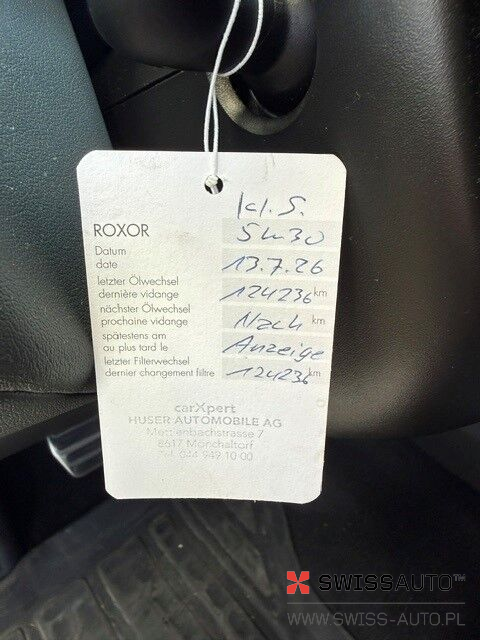 kl. S.
ROXOR 5W30
Datum
date 13.7.26
letzter Ölwechsel
dernière vidange 124236 km
nächster Ölwechsel
prochaine vidange Nach km
spätestens am
au plus tard le Anzeige
letzter Filterwechsel
dernier changement filtre 124236 km
carXpert
HUSER AUTOMOBILE AG
Mettlenbachstrasse 7
8617 Mönchaltorf
Tel. 044 949 10 00
SWISSAUTO™
WWW.SWISS-AUTO.PL